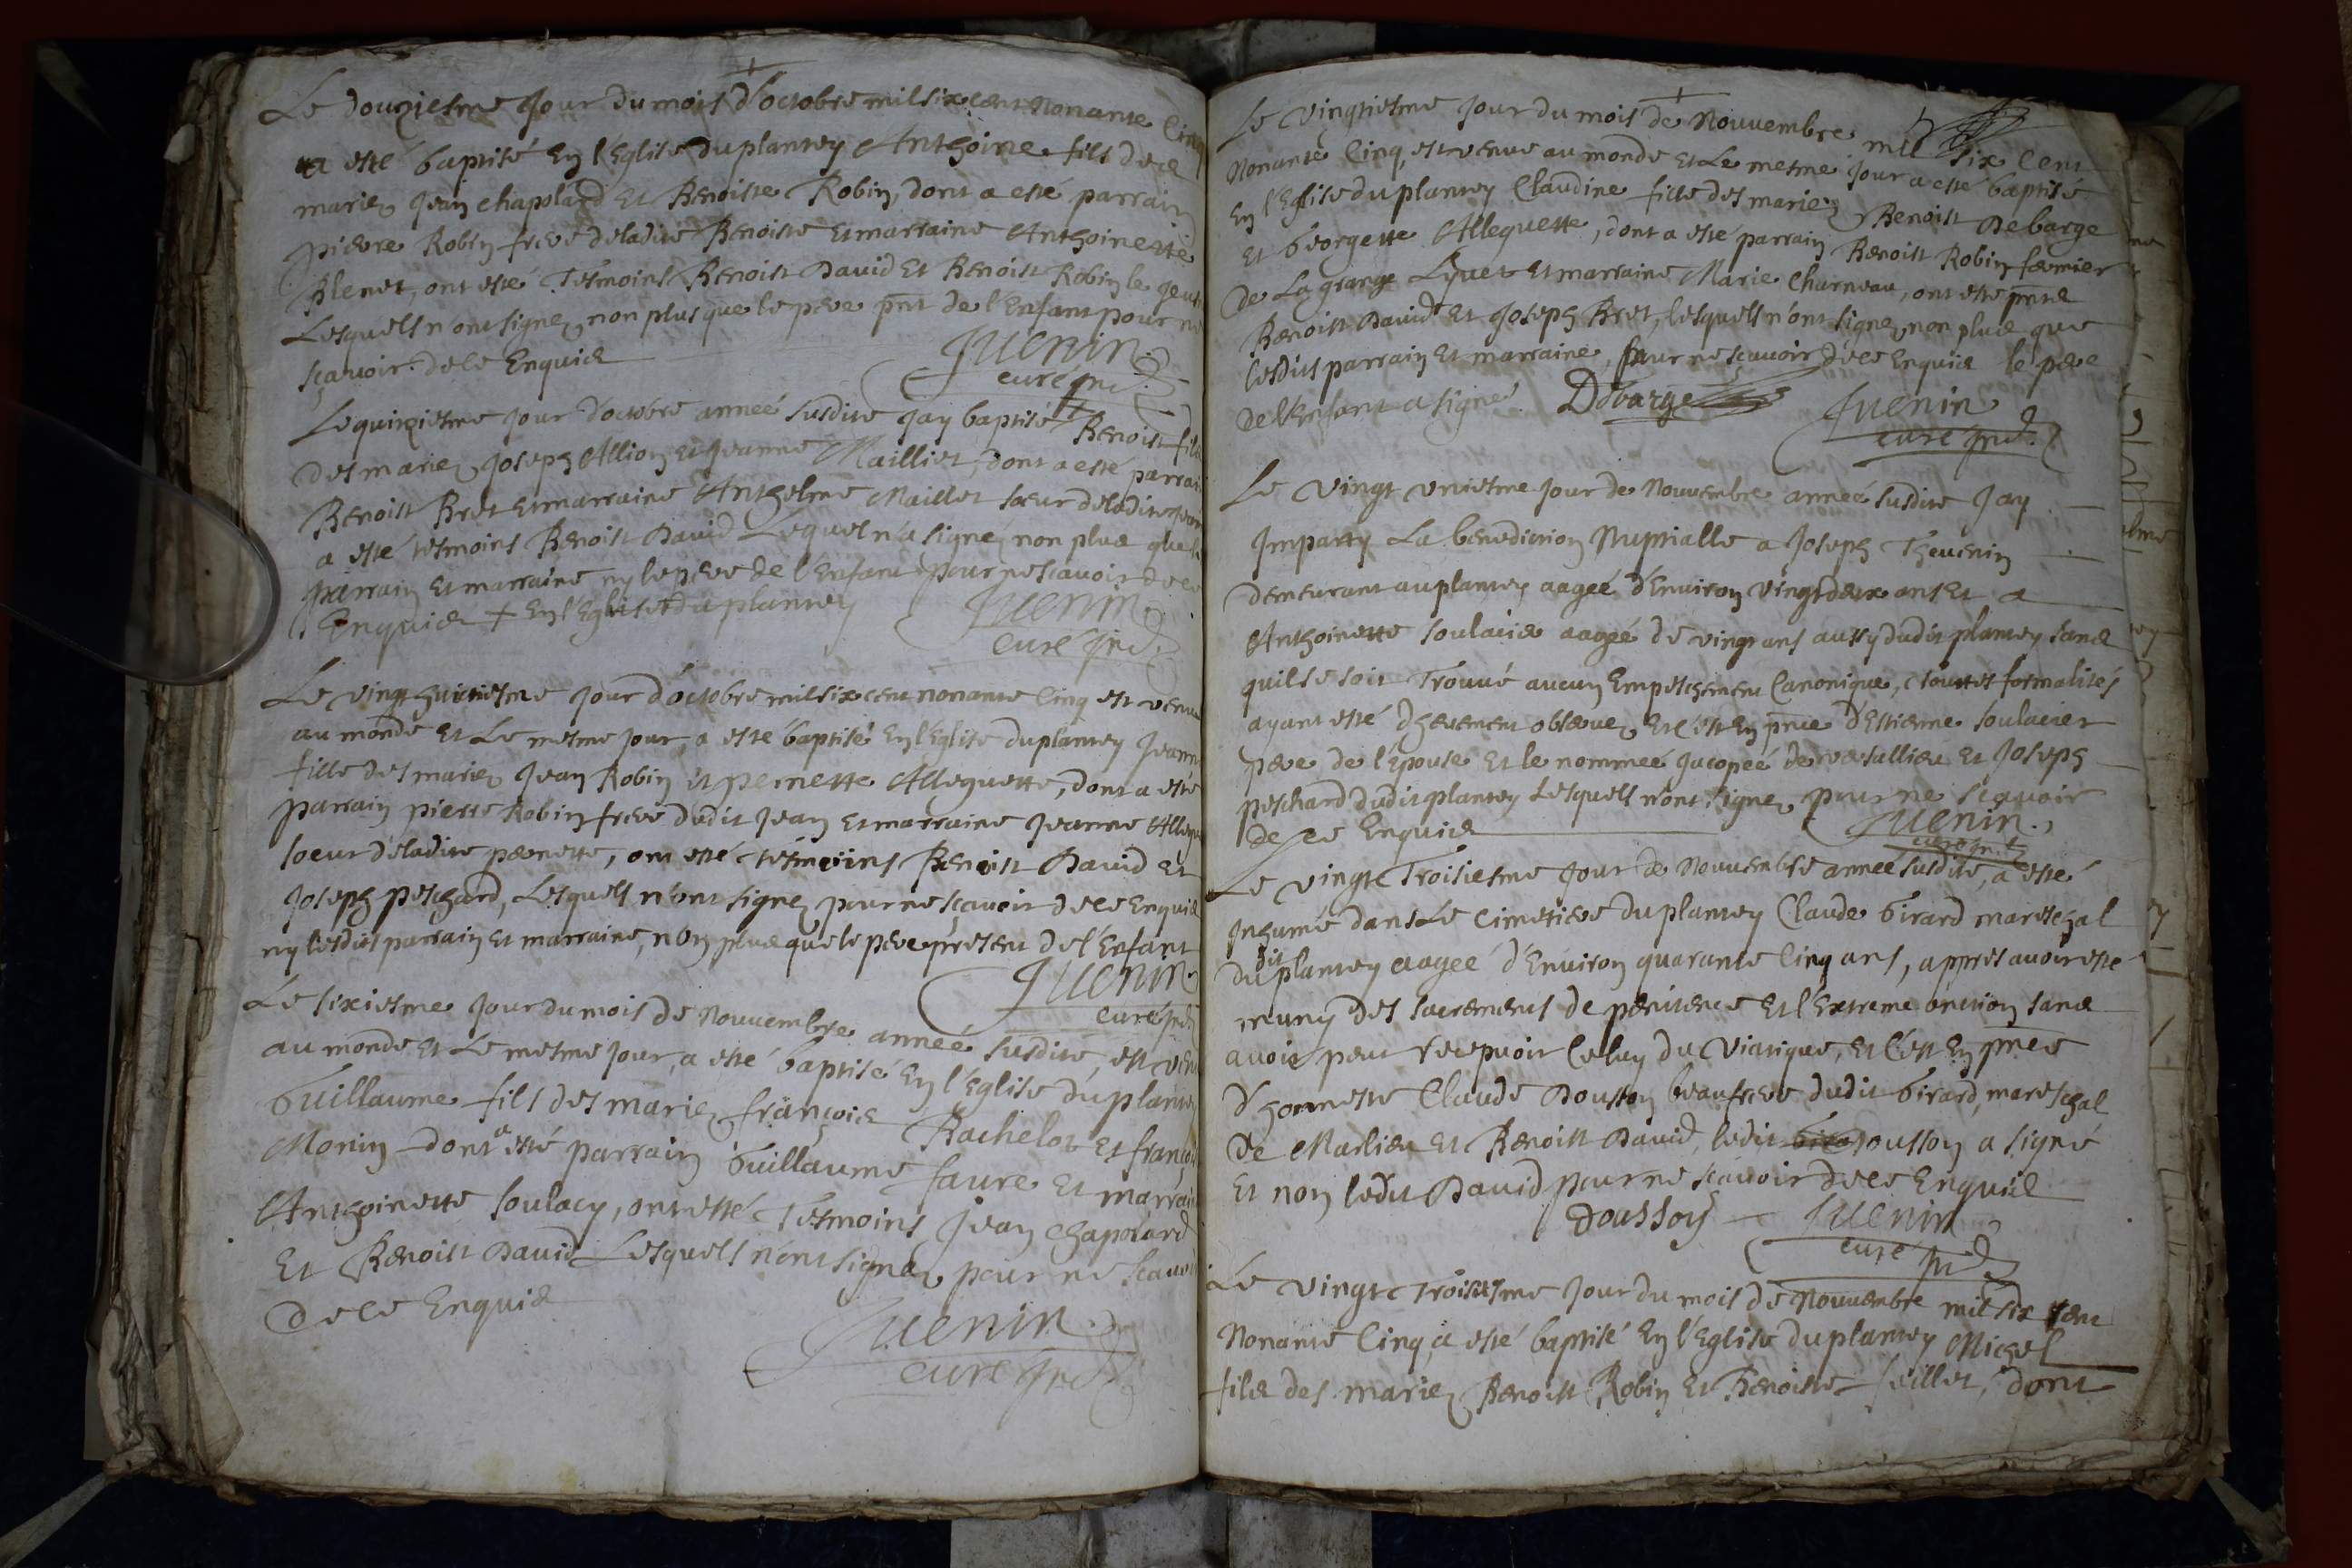 Le douziesme Jour du mois d'octobre mil six cent Nonante Cinq
a esté baptisé En l'Eglise du plantey Anthoine fils des
mariez Jean chapolard Et Benoiste Robin, dont a esté parrain
pierre Robin frere de ladite Benoiste Et marraine Anthoinette
Blenet, ont esté Tesmoins Benoist David Et Benoist Robin le jeune
Lesquels n'ont signez non plus que le pere pnt de l'Enfant pour ne
sçavoir de ce Enquis
Juenin
curé
Le quinziesme Jour d'octobre année susdite Jay baptisé Benoist fils
des mariez Joseph Allion Et Jeanne Mailliet, dont a esté parrain
Benoist Bret Et marraine Anthelme Maillet soeur de ladite
a esté tesmoins Benoist David Lequel n'a signé, non plus que le
parrain Et marraine ny le pere de l'Enfant pour ne scavoir de ce
Enquis + En l'Eglise du plantey
Juenin
curé
Le vingt huictiesme Jour d'octobre mil six cent nonante Cinq est venue
au monde Et Le mesme Jour, a esté baptisé En l'Eglise du plantey Jeanne
fille des mariez Jean Robin et pernette Alleguette, dont a esté
parrain pierre Robin frere dudit Jean Et marraine Jeanne
soeur de ladite pernette, ont esté tesmoins Benoist David Et
Joseph peschard, Lesquels n'ont signez pour ne sçavoir de ce Enquis
ny lesdits parrain Et marraine, non plus que le pere present de l'Enfant
Juenin
curé
Le sixiesme Jour du mois de Nouvembre année susdite, est venu
au monde Et Le mesme Jour, a esté baptisé En l'Eglise du plantey
Guillaume fils des mariez françois Bachelot Et
Monin dont a esté parrain Guillaume faure Et marraine
Anthoinette soulacy, ont esté Tesmoins Jean Chapolard
Et Benoist David Lesquels n'ont signez pour ne scavoir
de ce Enquis
Juenin
curé
Le Vingtiesme Jour du mois de Nouvembre mil six Cent
Nonante Cinq, est venue au monde Et Le mesme Jour a esté baptisé
En l'Eglise du plantey Claudine fille des mariez Benoist Debarge
Et Georgette Alleguette, dont a esté parrain Benoist Robin fermier
de La grange Lyvet Et marraine Marie Charneau, ont esté pnts
Benoist David Et Joseph Bret, lesquels n'ont signez non plus que
lesdits parrain Et marraine, pour ne scavoir de ce Enquis le pere
de l'Enfant a signé. Debarge
Juenin
curé
Le Vingt vniesme Jour de Nouvembre année susdite Jay
Imparty La benediction Nuptialle a Joseph Thevenin
demeurant au plantey aagée d'Environ Vingt deux ans Et a
Anthoinette soulacie aagée de vingt ans aussy dudit plantey, sans
quil se soit Trouvé aucun Empeschement Canonique, touttes formalités
ayant esté observez, Et c'est En pnce d'Estienne soulacier
pere de l'épouse Et le nommeé Jacopée de versallieu Et Joseph
peschard dudit plantey Lesquels n'ont signez pour ne scavoir
de ce Enquis
Juenin
curé
Le vingt Troisiesme Jour de Nouvembre année susdite, a esté
Inhumé dans Le Cimetiere du plantey Claude Girard mareschal
dudit plantey aagée d'Environ quarante Cinq ans, appres avoir esté
muny des sacrements de penitence Et l'Extreme onction sans
avoir peut recepvoir Celuy du Viatique, Et c'est En pnce
d'honneste Claude Dousson beaufrere dudit Girard, mareschal
de Marlieu Et Benoist David, ledit Dousson a signé
Et non ledit David pour ne scavoir de ce Enquis
Dousson Juenin
curé
Le Vingt Troisiesme Jour du mois de Nouvembre mil six Cent
Nonante Cinq, a esté baptisé En l'Eglise du plantey Michel
fils des mariez Benoist Robin Et Benoiste feillet, dont